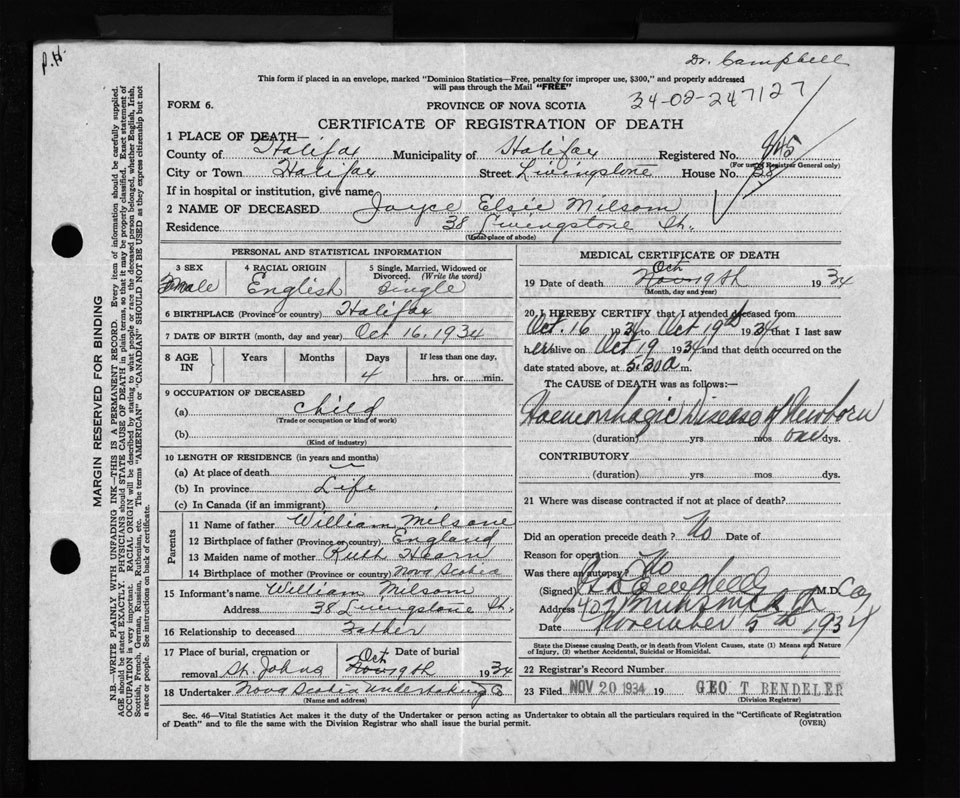 P.H.
Dr. Campbell
This form if placed in an envelope, marked "Dominion Statistics—Free, penalty for improper use, $300," and properly addressed
will pass through the Mail "FREE"
34-02-247127
FORM 6.
PROVINCE OF NOVA SCOTIA
CERTIFICATE OF REGISTRATION OF DEATH
1 PLACE OF DEATH—
County of Halifax Municipality of Halifax Registered No.
(For use of Registrar General only)
City or Town Halifax Street Livingstone House No. 38
If in hospital or institution, give name
2 NAME OF DECEASED Joyce Elsie Milsom
Residence 38 Livingstone St.
(Usual place of abode)
MARGIN RESERVED FOR BINDING
N.B.—WRITE PLAINLY WITH UNFADING INK—THIS IS A PERMANENT RECORD. Every item of information should be carefully supplied.
AGE should be stated EXACTLY. PHYSICIANS should STATE CAUSE OF DEATH in plain terms, so that it may be properly classified. Exact statement of
OCCUPATION is very important. RACIAL ORIGIN will be described by stating to what people or race the deceased person belonged, whether English, Irish,
Scottish, French, German, Russian, Ruthenian, etc. The terms "AMERICAN" or "CANADIAN" SHOULD NOT BE USED as they express citizenship but not
a race or people. See instructions on back of certificate.
PERSONAL AND STATISTICAL INFORMATION
3 SEX
Female
4 RACIAL ORIGIN
English
5 Single, Married, Widowed or
Divorced. (Write the word)
Single
6 BIRTHPLACE (Province or country) Halifax
7 DATE OF BIRTH (month, day and year) Oct 16, 1934
8 AGE IN Years Months Days If less than one day,
4 hrs. or min.
9 OCCUPATION OF DECEASED
(a) Child
(Trade or occupation or kind of work)
(b)
(Kind of industry)
10 LENGTH OF RESIDENCE (in years and months)
(a) At place of death
(b) In province Life
(c) In Canada (if an immigrant)
Parents
11 Name of father William Milsone
12 Birthplace of father (Province or country) England
13 Maiden name of mother Ruth Hearn
14 Birthplace of mother (Province or country) Nova Scotia
15 Informant's name William Milsom
Address 38 Livingstone St.
16 Relationship to deceased Father
17 Place of burial, cremation or removal St. Johns
Date of burial Oct 19th 1934
18 Undertaker Nova Scotia Undertaking Co
(Name and address)
MEDICAL CERTIFICATE OF DEATH
19 Date of death Oct 19th 1934
(Month, day and year)
20 I HEREBY CERTIFY that I attended deceased from
Oct. 16 1934 to Oct 19th 1934 that I last saw
her alive on Oct 19 1934 and that death occurred on the
date stated above, at 5.30 a m.
The CAUSE of DEATH was as follows:—
Haemorrhagic Disease of Newborn
(duration) yrs mos one dys.
CONTRIBUTORY
(duration) yrs mos dys.
21 Where was disease contracted if not at place of death?
Did an operation precede death? No Date of
Reason for operation
Was there an autopsy? No
(Signed) M.D.
Address
Date November 5th 1934
State the Disease causing Death, or in death from Violent Causes, state (1) Means and Nature
of Injury, (2) whether Accidental, Suicidal or Homicidal.
22 Registrar's Record Number
23 Filed NOV 20 1934 19 GEO T BENDELER
(Division Registrar)
Sec. 46—Vital Statistics Act makes it the duty of the Undertaker or person acting as Undertaker to obtain all the particulars required in the "Certificate of Registration
of Death" and to file the same with the Division Registrar who shall issue the burial permit.
(OVER)